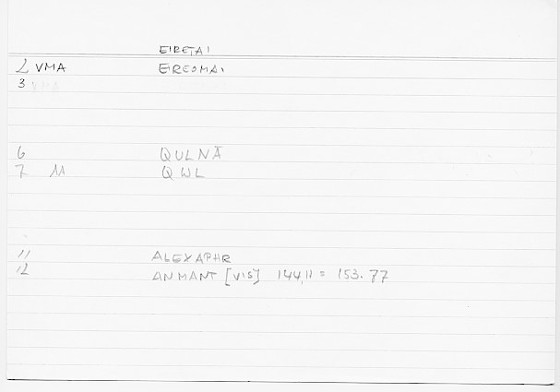 EIRETAI
2 VMA EIREOMAI
3
6 QULNÄ
7 11 QWL
11 ALEXAPHR
12 ANMANT [VIS] 144,11 = 153.77